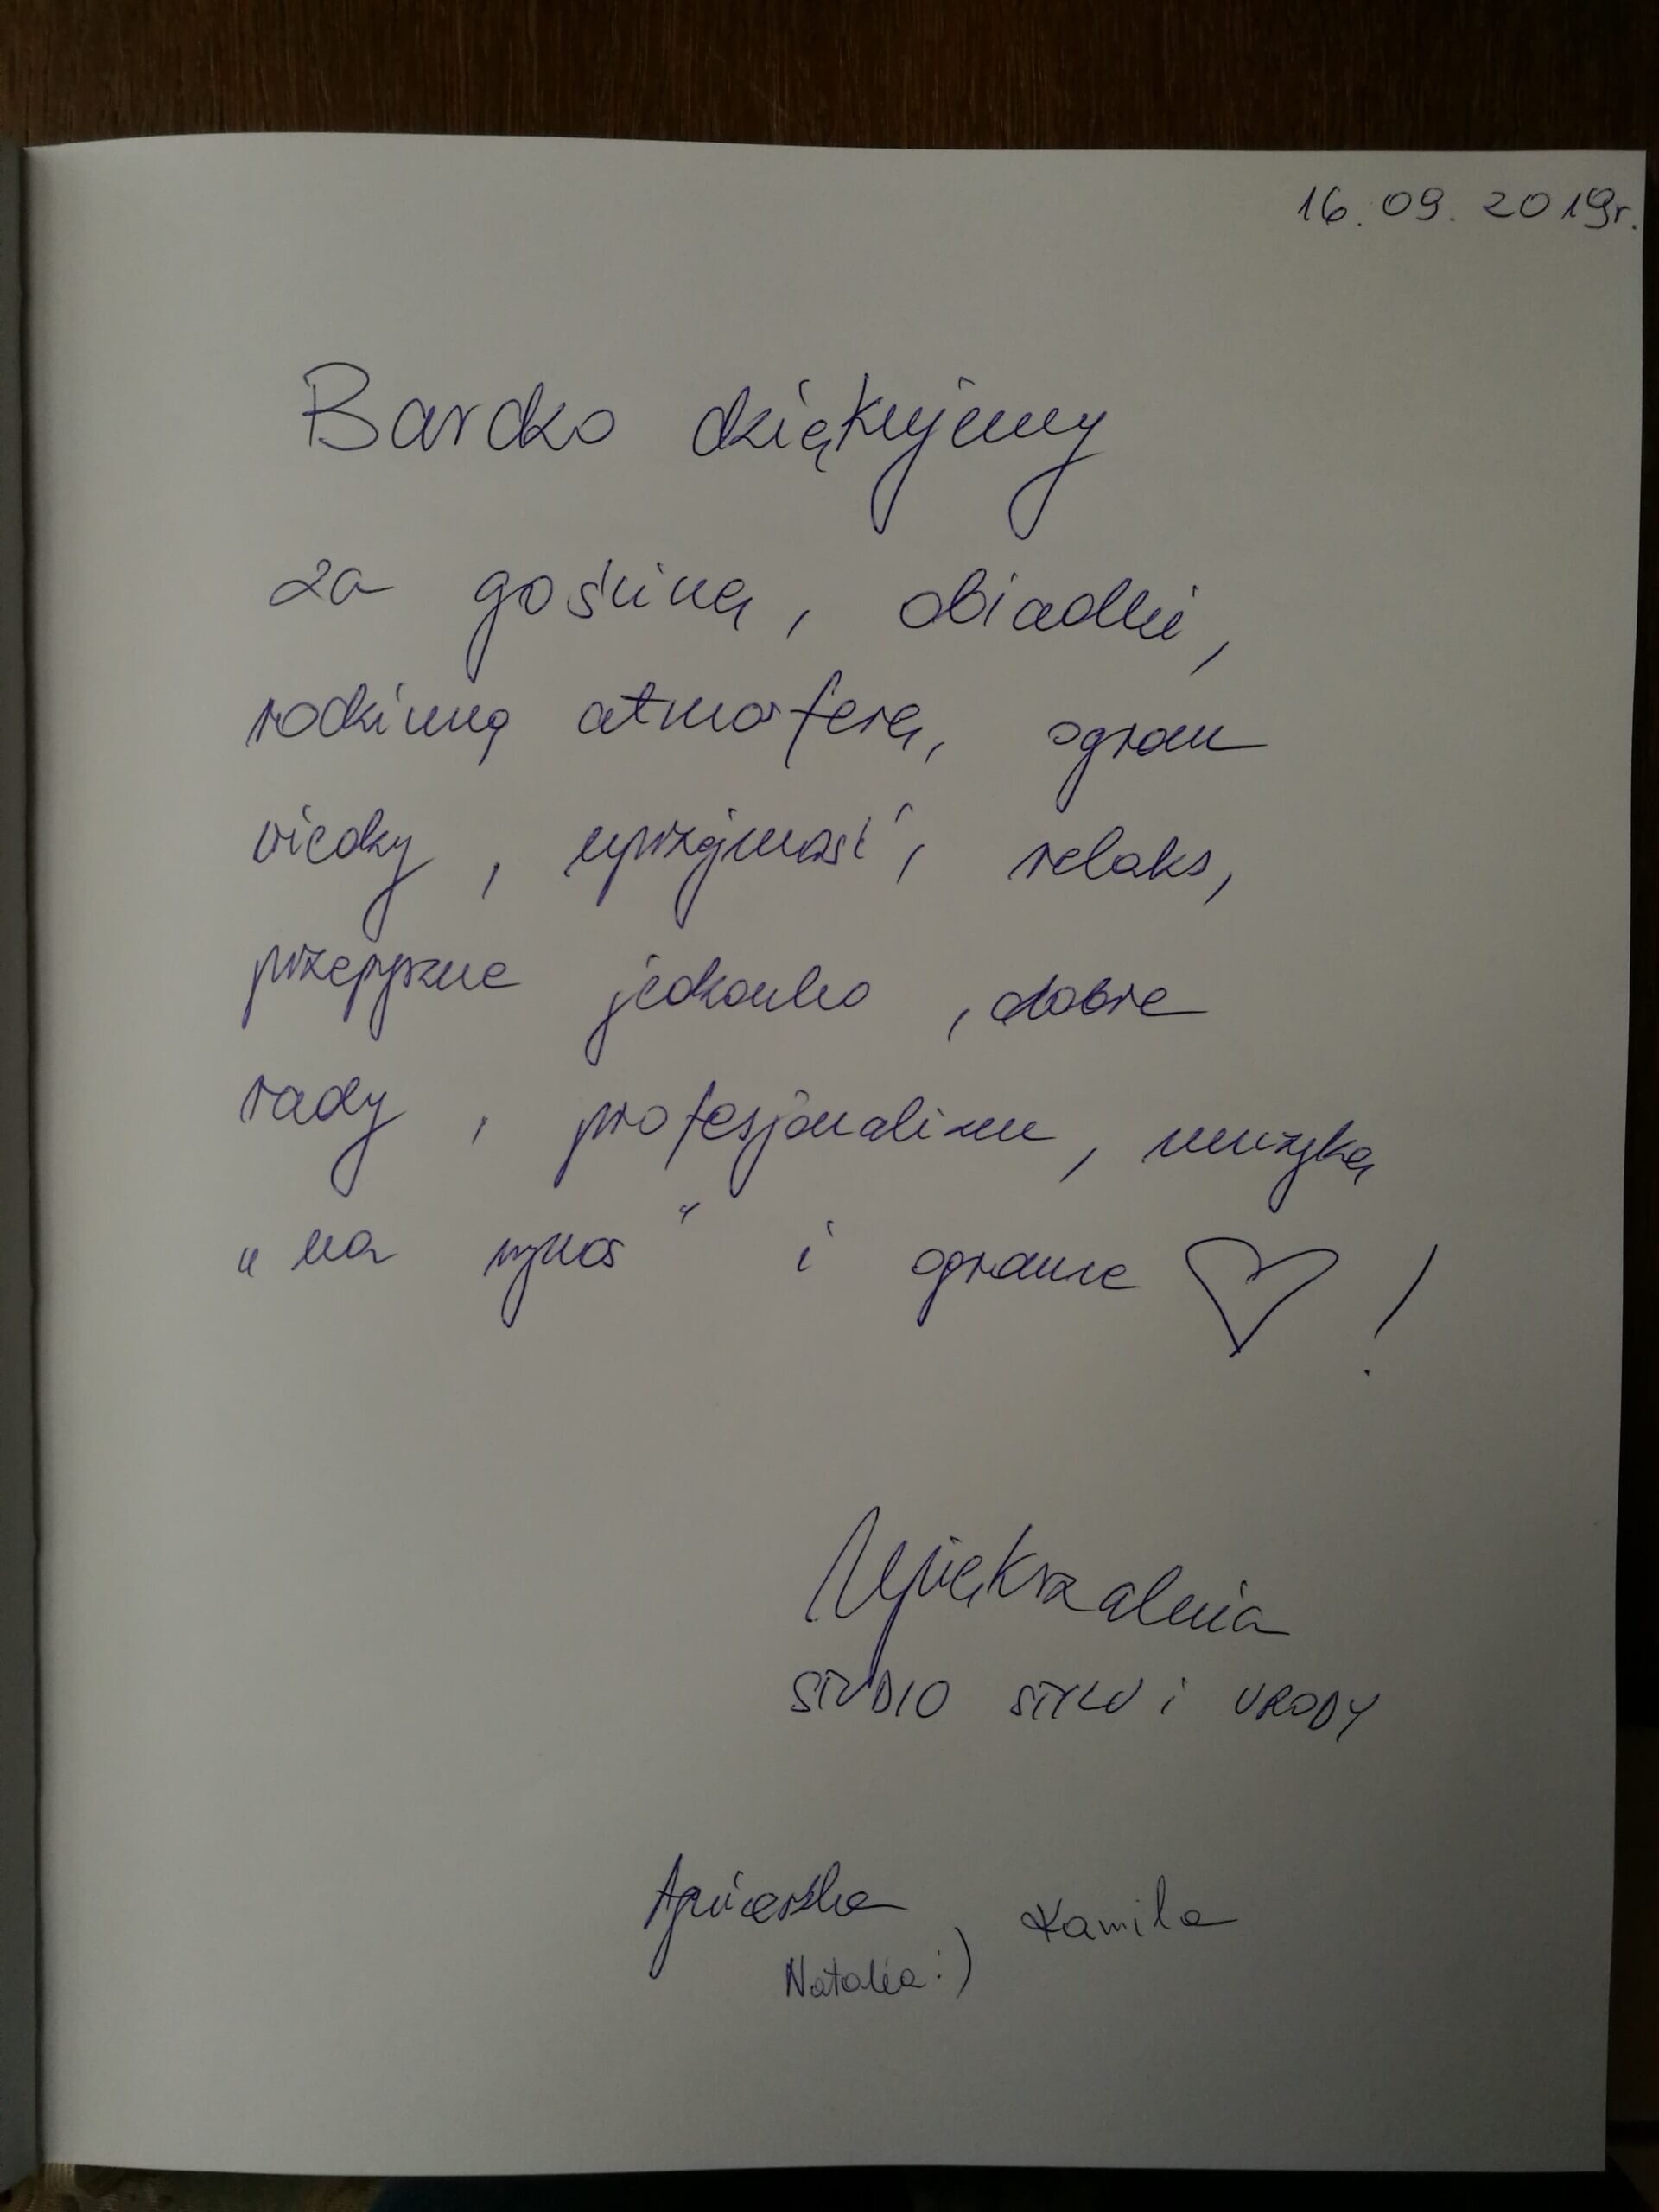 16.09.2019r.
Bardzo dziękujemy
za gościnę, obiadki,
rodzinną atmosferę, ogrom
wiedzy, uprzejmość, relaks,
przepyszne jedzonko, dobre
rady, profesjonalizm, muzykę
„na wynos" i ogromne ♡!
Upiększalnia
STUDIO STYLU i URODY
Agnieszka, Kamila
Natalia :)